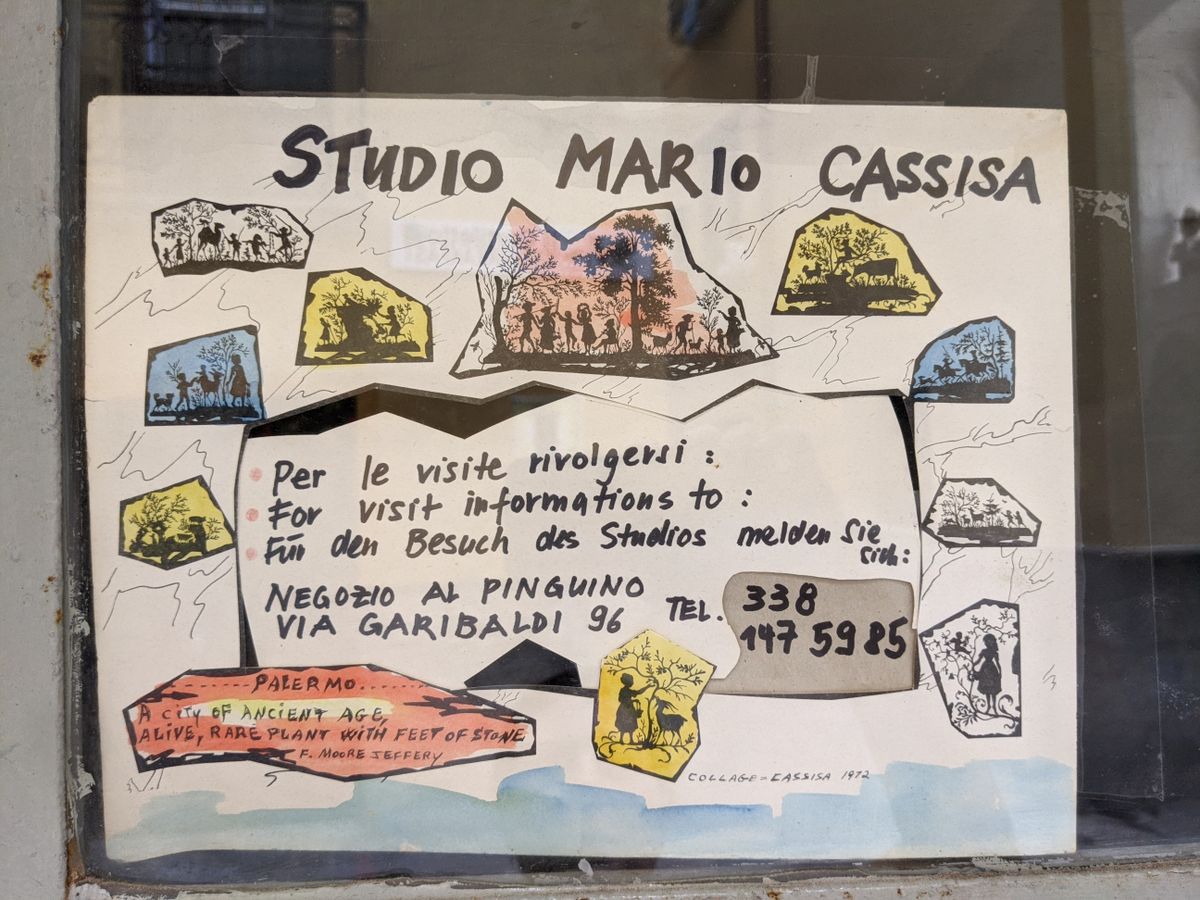 STUDIO MARIO CASSISA
Per le visite rivolgersi :
For visit informations to :
Für den Besuch des Studios melden Sie
sich:
NEGOZIO AL PINGUINO
VIA GARIBALDI 96
TEL. 338
147 59 85
......PALERMO......
A CITY OF ANCIENT AGE,
ALIVE, RARE PLANT WITH FEET OF STONE
F. MOORE JEFFERY
COLLAGE = CASSISA 1972